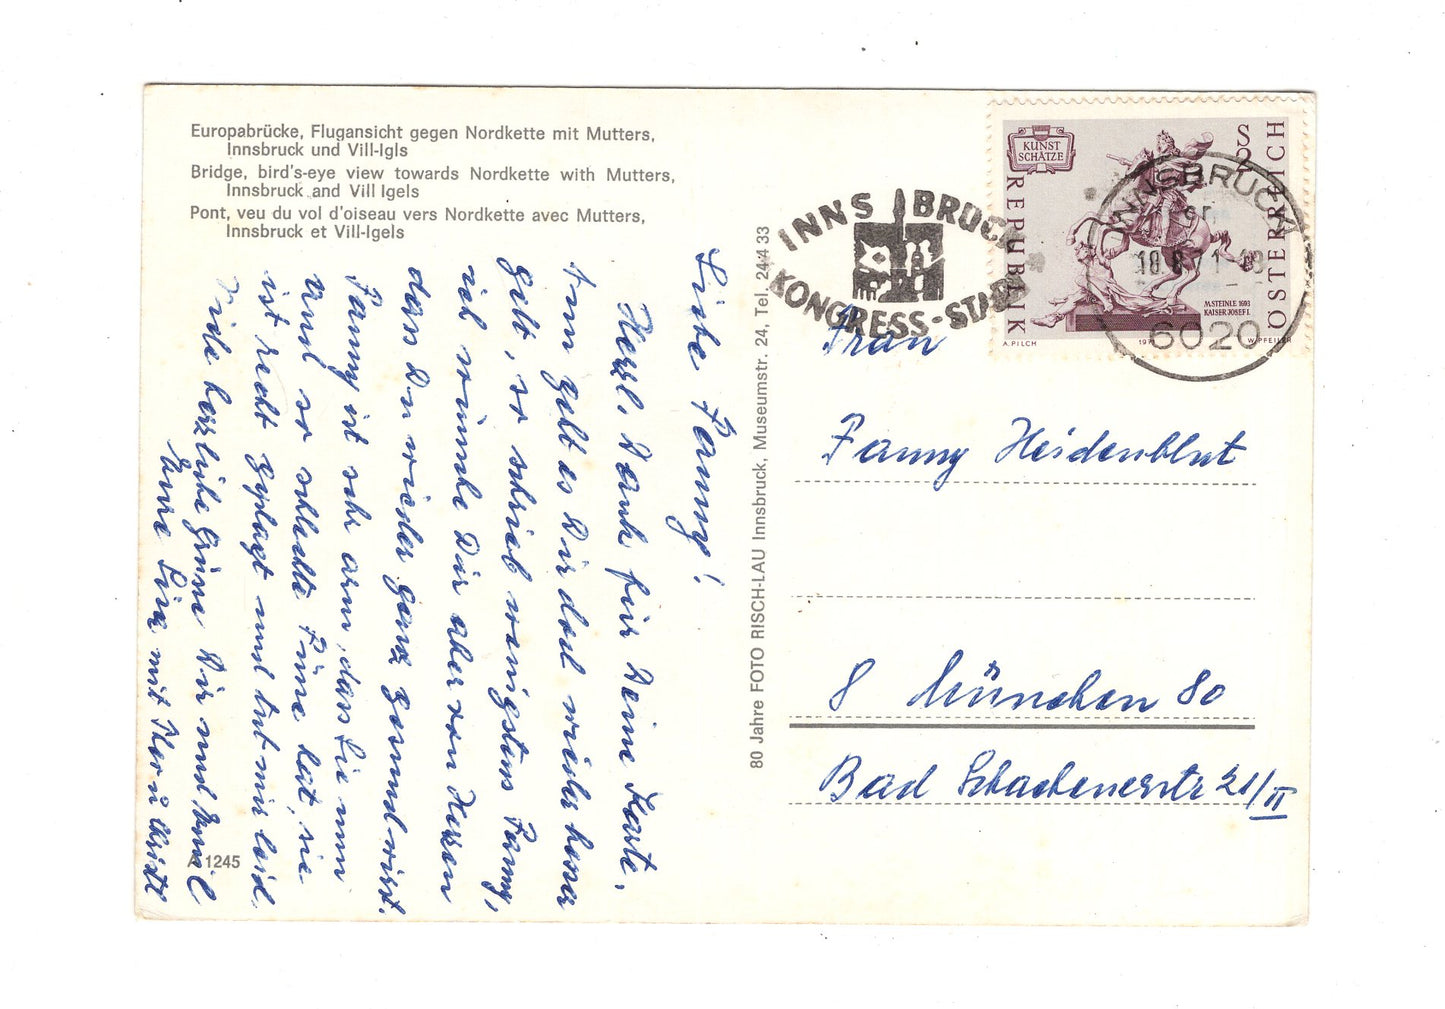 Europabrücke, Flugansicht gegen Nordkette mit Mutters,
Innsbruck und Vill-Igls
Bridge, bird's-eye view towards Nordkette with Mutters,
Innsbruck and Vill Igels
Pont, veu du vol d'oiseau vers Nordkette avec Mutters,
Innsbruck et Vill-Igels
Liebe Fanny!
Herzl. Dank für Deine Karte.
geht es Dir doch wieder besser
geht, so schrieb wenigstens Fanny,
ich wünsche Dir aber von Herzen
dass Du wieder ganz gesund wirst.
Fanny ist sehr arm, dass Sie nun
und so schlechte Füße hat, sie
ist recht geplagt und tut mir leid.
Viele herzliche Grüsse Dir und Emil
Eure mit
A 1245
80 Jahre FOTO RISCH-LAU Innsbruck, Museumstr. 24, Tel. 24 4 33
INNS BRUCK
KONGRESS-STADT
KUNST
SCHÄTZE
S 2
REPUBLIK
ÖSTERREICH
M. STEINLE 1693
KAISER JOSEF I.
A. PILCH
1971
W. PFEILER
INNSBRUCK
18. 8. 71 -18
6020
Frau
Fanny Heidenblut
8 München 80
Bad Schachenerstr 21/II